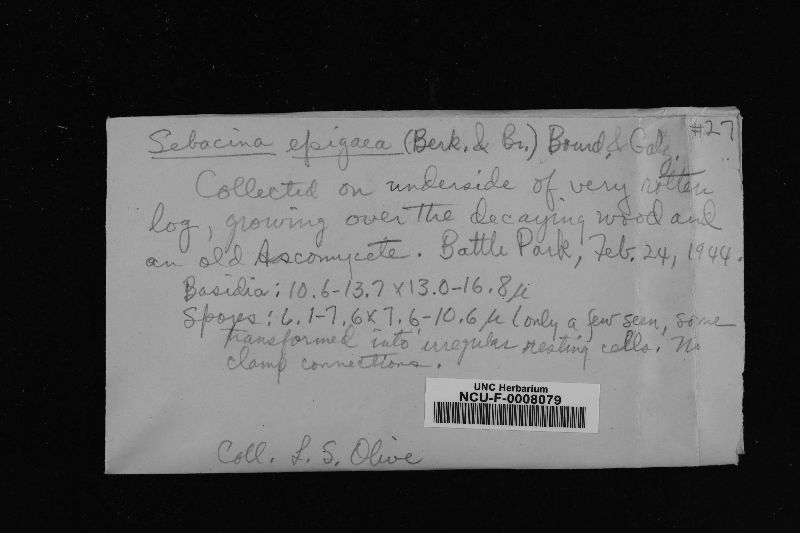 #27
Sebacina epigaea (Berk. & Br.) Bourd. & Galz.
Collected on underside of very rotten
log, growing over the decaying wood and
an old Ascomycete. Battle Park, Feb. 24, 1944.
Basidia: 10.6-13.7 x 13.0-16.8 μ
Spores: 6.1-7.6 x 7.6-10.6 μ (only a few seen, some
transformed into irregular resting cells. No
clamp connections.
UNC Herbarium
NCU-F-0008079
Coll. L. S. Olive